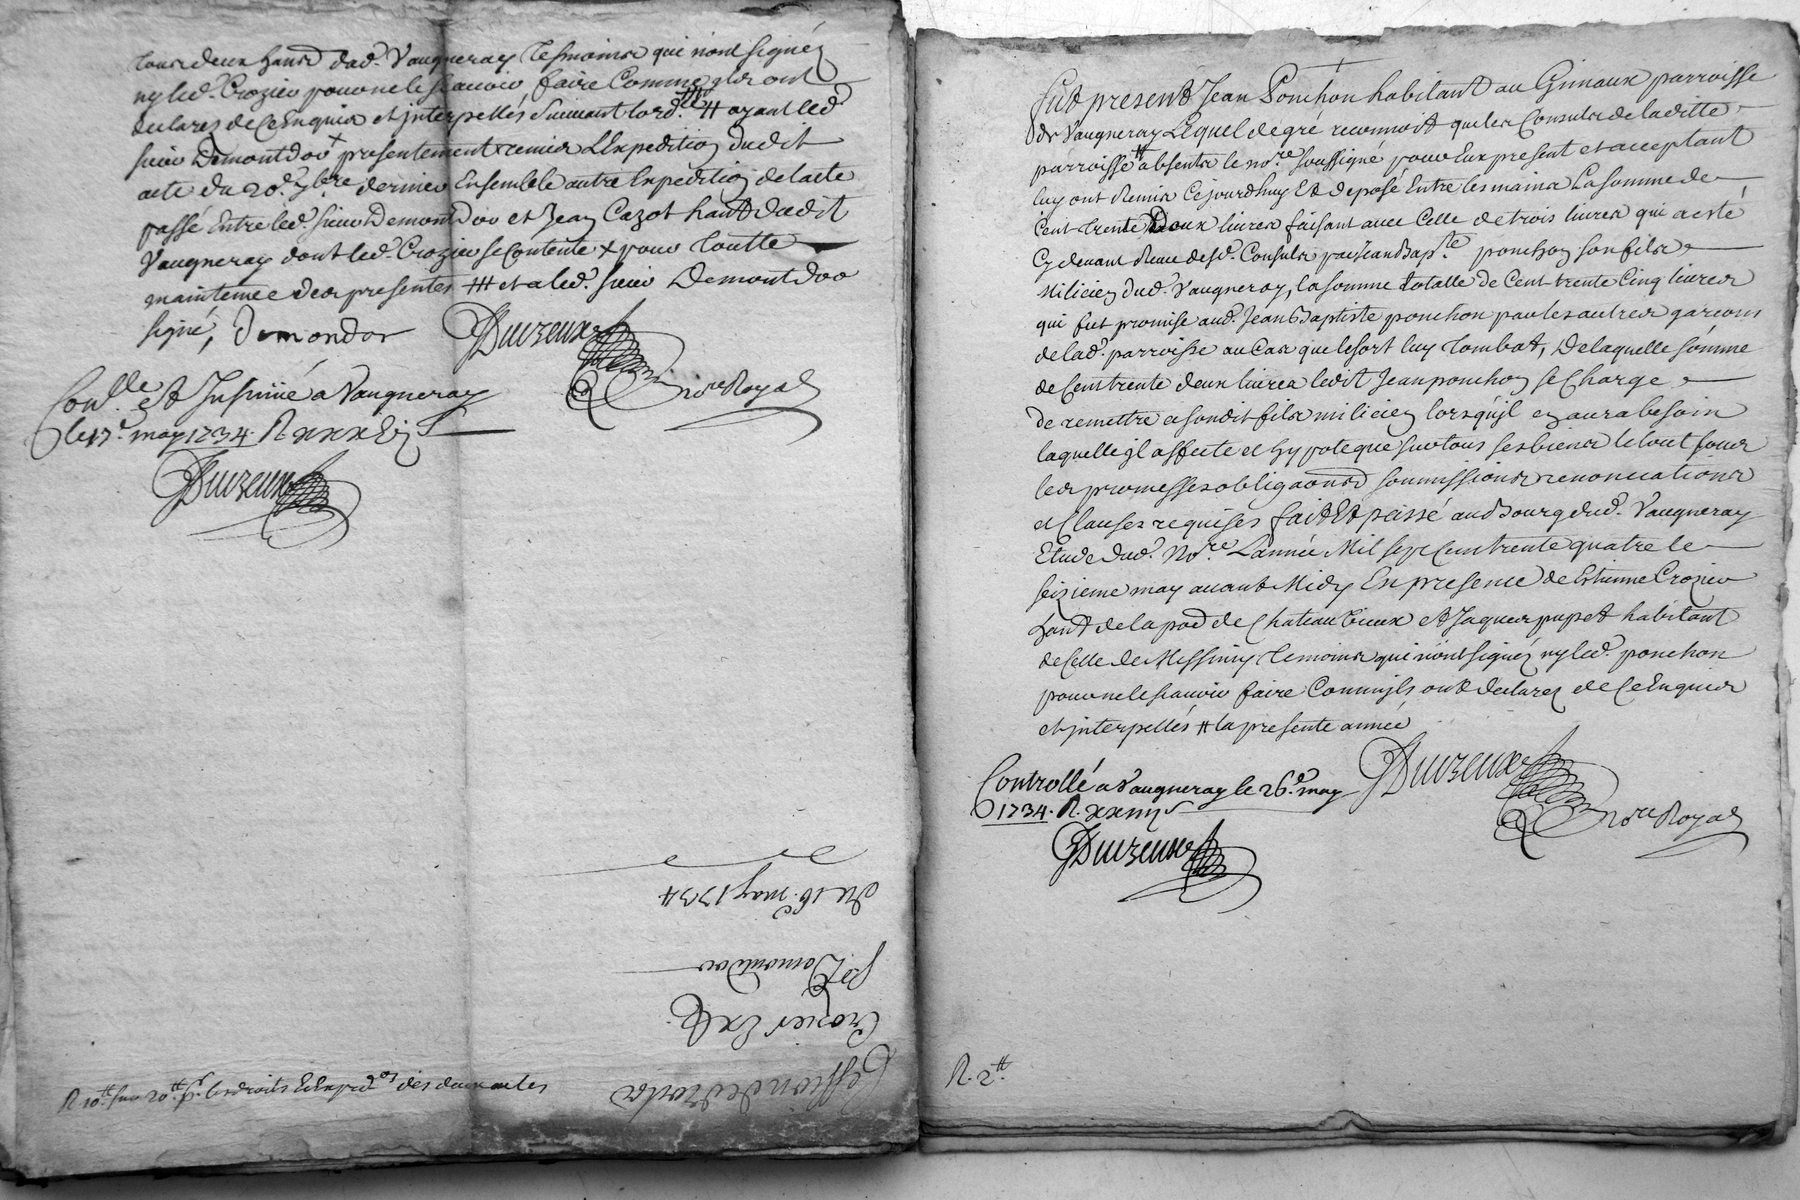 tous deux hans dud. Vaugneray tesmoins qui n'ont signéz
ny led. Crozier pour ne le scavoir faire comme ils ont
declarez de ce Enquis et interpellés suivant l'ord. # ayant led
sieur Demontdor + presentement remis L'Expedition dudit
acte du 20.e 7bre dernier Ensemble autre Expedition de l'acte
passé Entre led. sieur Demontdor et Jean Cazot hant dudit
Vaugneray dont led. Crozier se contente + pour toutte
maintenue des presentes ## et a led. sieur Demontdor
signé, Demondor
Duizeux
no.re Royal
Con.lle et Insinué a Vaugneray
le 17.e may 1734. R
Duizeux
du 16.e may 1734
p.r Demontdor
Crozier
Cession de droits
R 10.# sur 20.# p.r les droits et Exped.ons des deux actes
Fut present Jean Ponchon habitant au Gimaux parroisse
de Vaugneray Lequel de gré reconnoit que les Consuls de laditte
parroisse # absents le no.re soussigné pour Eux present et acceptant
luy ont Remis Cejourdhuy Et deposé Entre les mains La somme de
Cent trente Deux livres faisant avec Celle de trois livres qui a esté
Cy devant Reçue desd. Consuls par Jean Bap.te ponchon son fils
Milicien dud. Vaugneray, la somme totalle de Cent trente Cinq livres
qui fut promise aud. Jean Baptiste ponchon par les autres garçons
de lad. parroisse au Cas que le sort luy tombat, De laquelle somme
de Cent trente deux livres ledit Jean ponchon se Charge
de remettre a sondit fils milicien lorsqu'jl en aura besoin
laquelle jl affecte et hypoteque sur tous ses biens le tout sous
les promesses obligaons soumissions renonciations
et Clauses requises fait Et passé au Bourg dud. Vaugneray
Etude dud. No.re L'année Mil sept Cent trente quatre le
seizieme may avant Midy En presence de Estienne Crozier
hant de la pa.d de Chateauvieux et Jaques pupet habitant
de Celle de Messimy temoins qui n'ont signéz ny led. ponchon
pour ne le scavoir faire Comm'jls ont declarez de Ce Enquis
et jnterpellés # la presente année
Duizeux
no.re Royal
Controllé a Vaugneray le 26.e may
1734. R.
Duizeux
R. 2.#